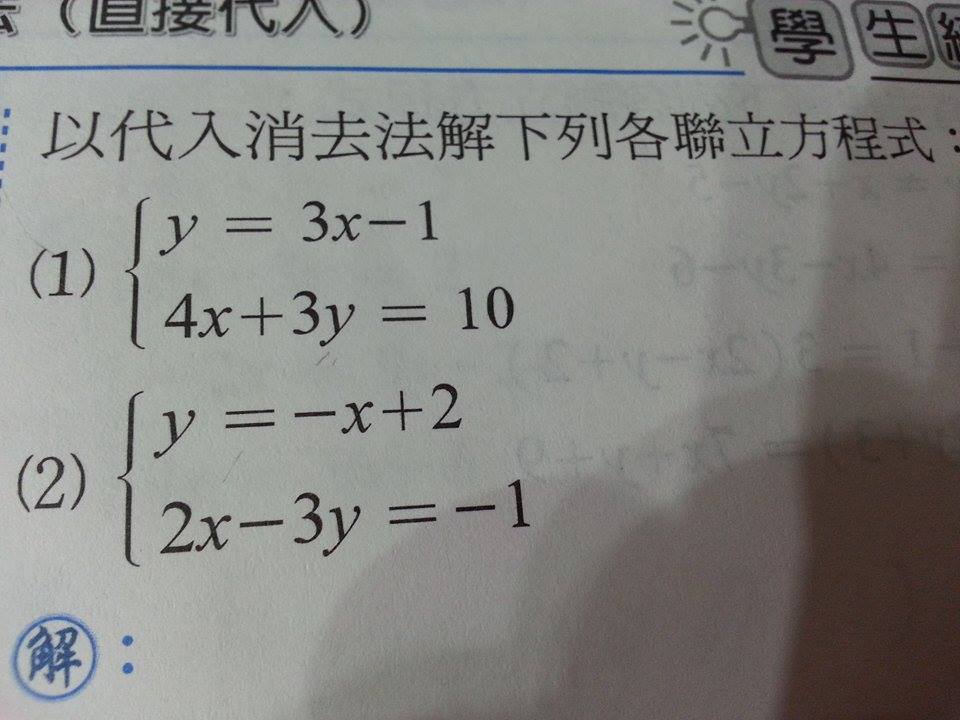 （直接代入）
學生
以代入消去法解下列各聯立方程式：
(1) { y = 3x−1
4x+3y = 10
(2) { y = −x+2
2x−3y = −1
解：